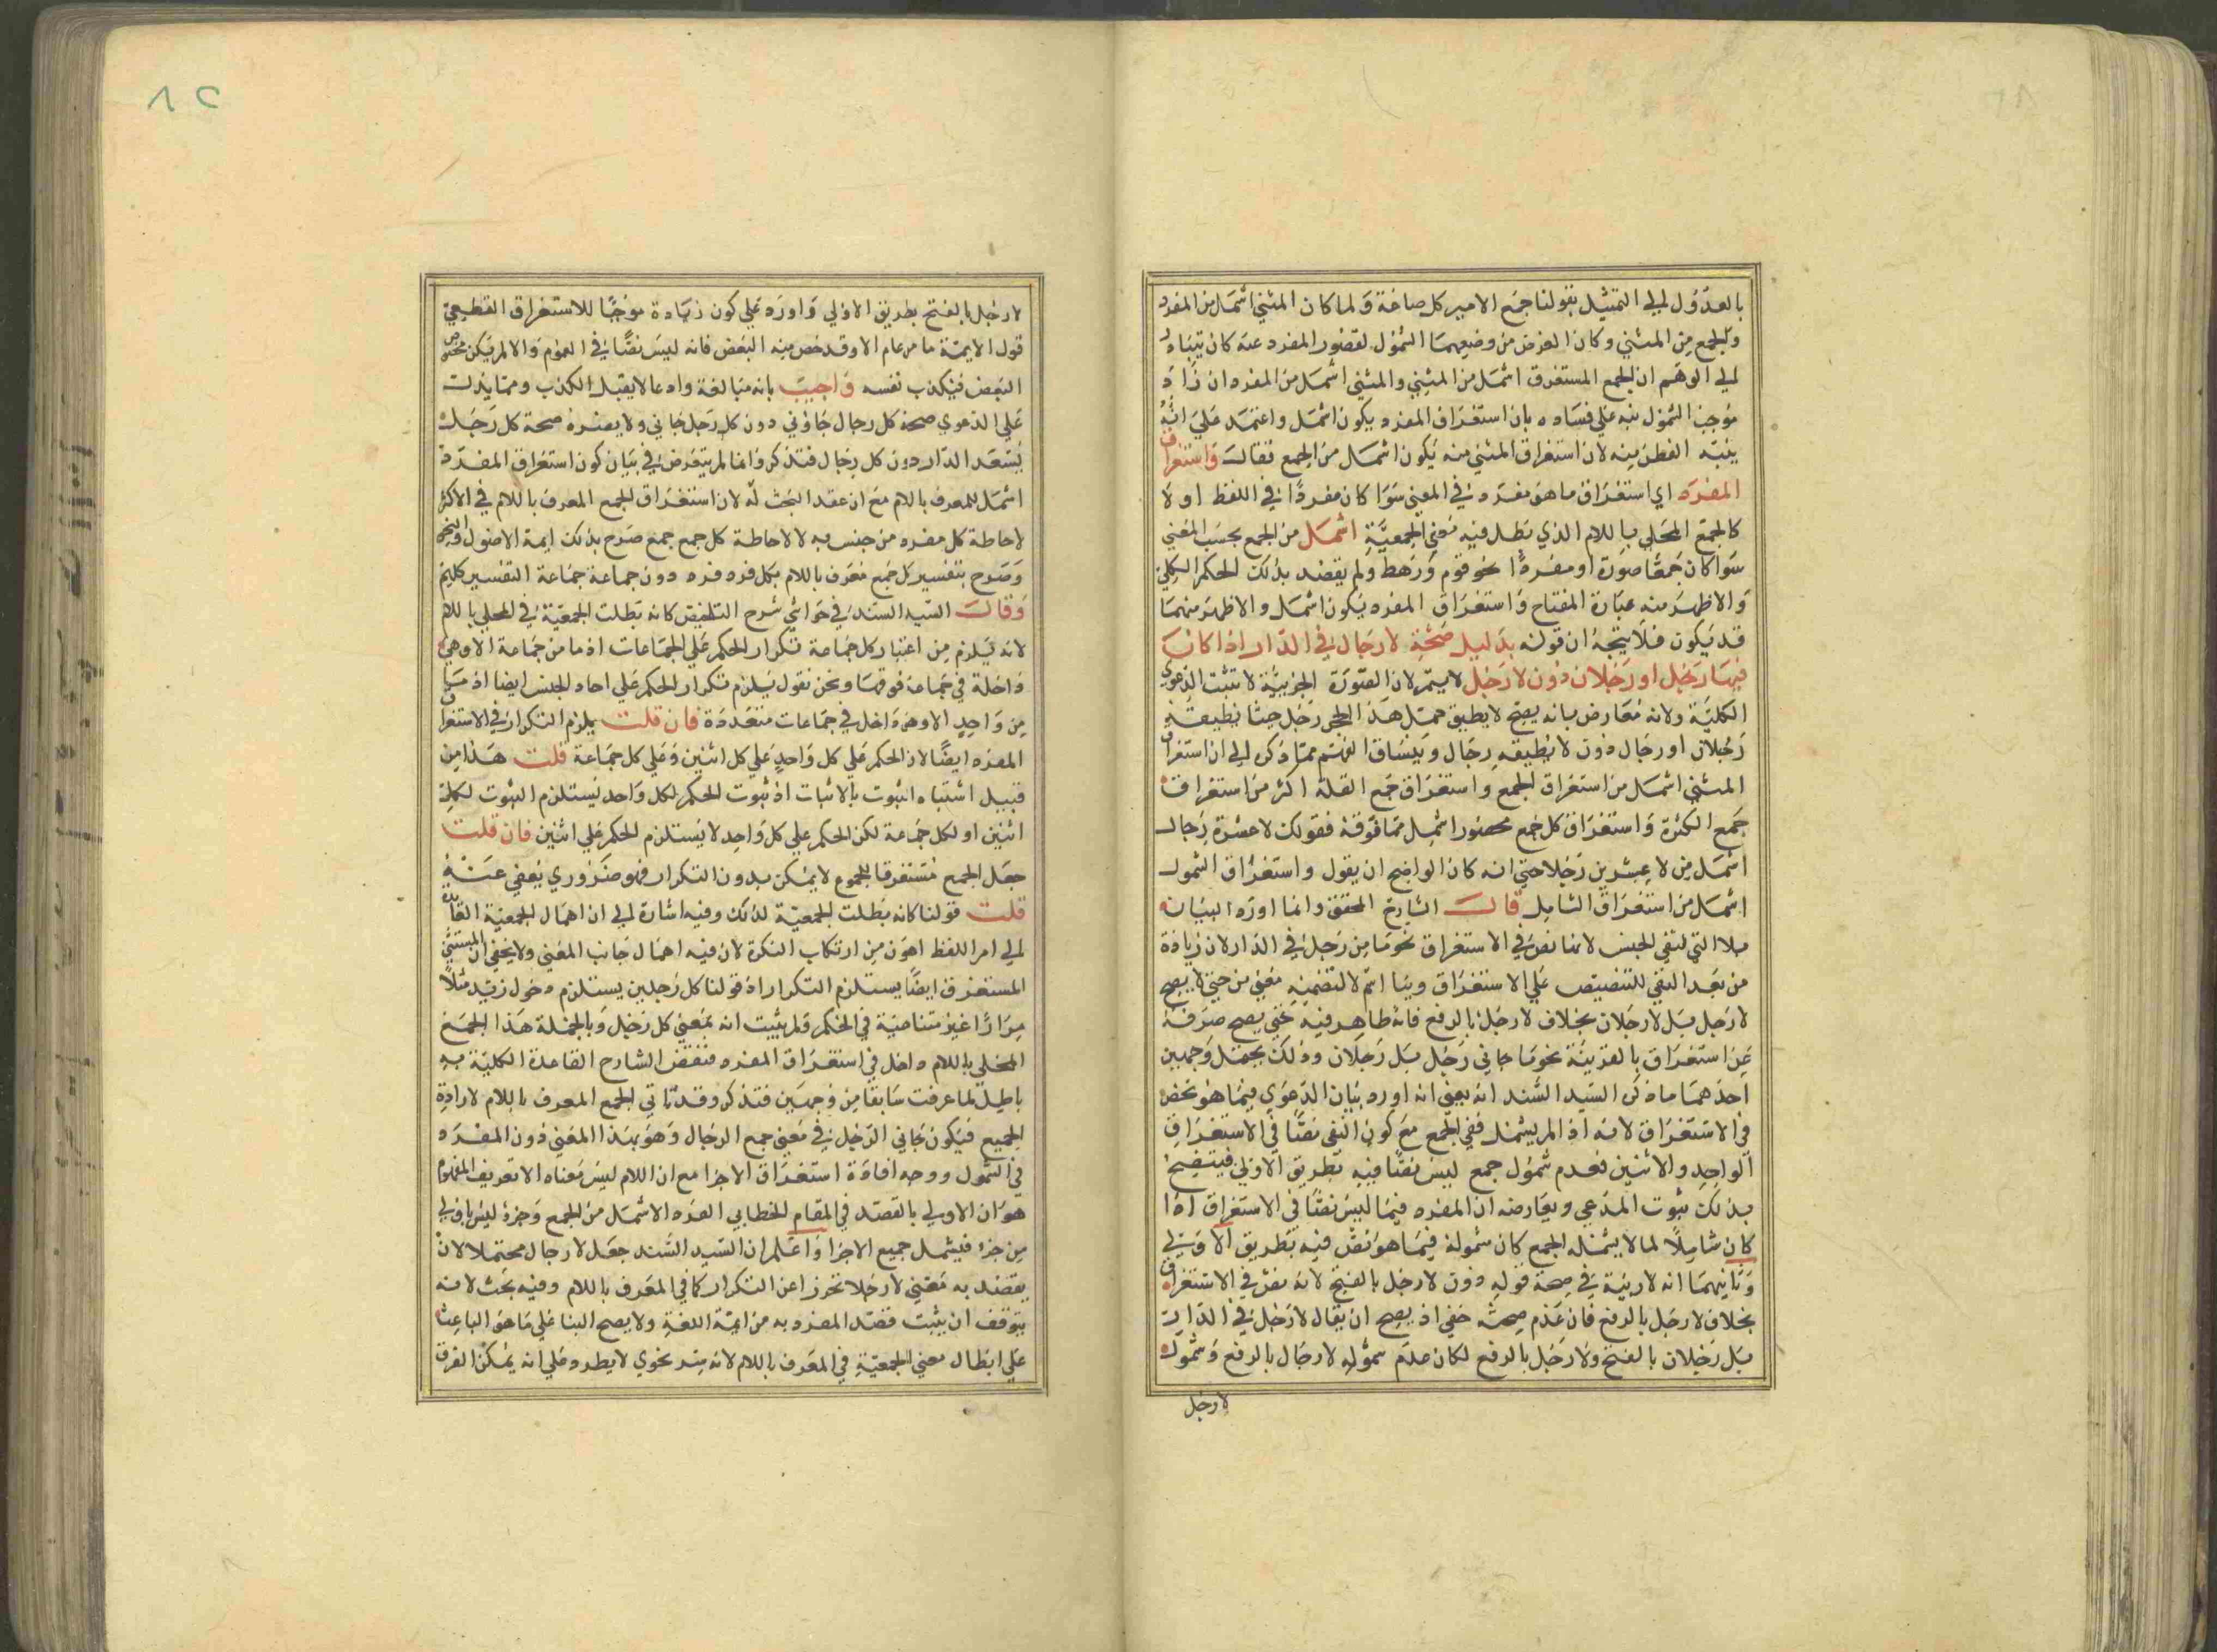 بالعدول الي التمثيل بقولنا جمع الامير كل صاغة ولما كان المثني اشمل من المفرد
والجمع من المثني وكان الغرض من وضعهما الشمول لقصور المفرد عنه كان يتبادر
الي الوهم ان الجمع المستغرق اشمل من المثني والمثني اشمل من المفرد ان زاد
موجب الشمول نبه علي فساده بان استغراق المفرد يكون اشمل واعتمد علي انه
ينبه الفطن منه لان استغراق المثني منه يكون اشمل من الجمع فقال واستغراق
المفرد اي استغراق ما هو مفرد في المعني سوا كان مفردا في اللفظ او لا
كالجمع المحلي باللام الذي بطل فيه معني الجمعية اشمل من الجمع بحسب المعني
سوا كان جمعا صورة او مفردا نحو قوم ورهط ولم يقصد بذلك الحكم الكلي
والاظهر منه عبارة المفتاح واستغراق المفرد يكون اشمل والاظهر منهما
قد يكون فلا يتجه ان قوله بدليل صحة لا رجال في الدار اذا كان
فيها رجل او رجلان دون لا رجل لا يتم لان الصورة الجزيية لا تثبت الدعوي
الكلية ولانه معارض بانه يصح لا يطيق حمل هذا الحجر رجل حيثا يطيقه
رجلان او رجال دون لا يطيقه رجال وينساق الفهم مما ذكر الي ان استغراق
المثني اشمل من استغراق الجمع واستغراق جمع القلة اكثر من استغراق
جمع الكثرة واستغراق كل جمع محصور اشمل مما فوقه فقولك لا عشرة رجال
اشمل من لا عشرين رجلا حتي انه كان الواضح ان يقول واستغراق الشمول
اشمل من استغراق الشامل قال الشارح المحقق وانما اورد البيان
بلا التي لنفي الجنس لانها نص في الاستغراق نحو ما من رجل في الدار لان زيادة
من بعد النفي للتنصيص علي الاستغراق وبنا اسم لا لتضمنه معني من حتي لا يصح
لا رجل بل لا رجلان بخلاف لا رجل بالرفع فانه ظاهر فيه حتي يصح صرفه
عن استغراق بالقرينة نحو ما جاني رجل بل رجلان وذلك يحتمل وجهين
احدهما ما ذكر السيد السند انه يعني انه اورد بيان الدعوي فيما هو نص
في الاستغراق لانه اذا لم يشمل نفي الجمع مع كون النفي نصا في الاستغراق
الواحد والاثنين فعدم شمول جمع ليس نصا فيه بطريق الاولي فيتضح
بذلك ثبوت المدعي ويعارضه ان المفرد فيما ليس نصا في الاستغراق اذا
كان شاملا لما لا يشمله الجمع كان شموله فيما هو نص فيه بطريق الاولي
وثانيهما انه لا ريبة في صحة قوله دون لا رجل بالفتح لانه نص في الاستغراق
بخلاف لا رجل بالرفع فان عدم صحته خفي اذ يصح ان يقال لا رجل في الدار
بل رجلان بالفتح ولا رجل بالرفع لكان عدم شموله لا رجال بالرفع وشمول
لا رجل
لا رجل بالفتح بطريق الاولي واورد علي كون زيادة موجبا للاستغراق القطعي
قول الايمة ما من عام الا وقد خص منه البعض فانه ليس نصا في العموم والا لم يكن مخصوص
البعض فيكذب نفسه واجيب بانه مبالغة وادعا لا يقبل الكذب ومما يدلك
علي الدعوي صحة كل رجال جاؤني دون كل رجل جاني ولا يضره صحة كل رجل
يسعه الدار دون كل رجال فتذكر وانما لم يتعرض في بيان كون استغراق المفرد
اشمل للمعرف باللام مع ان عقد البحث له لان استغراق الجمع المعرف باللام في الاكثر
لاحاطة كل مفرد من جنسه لا لاحاطة كل جمع جمع صرح بذلك ايمة الاصول والنحو
وصرح بتفسير كل جمع معرف باللام بكل فرد فرد دون جماعة جماعة التفسير كلهم
وقال السيد السند في حواشي شرح التلخيص كانه بطلت الجمعية في المحلي باللام
لانه يلزم من اعتبار كل جماعة تكرار الحكم علي الجماعات اذ ما من جماعة الا وهي
داخلة في جماعة فوقها ونحن نقول يلزم تكرار الحكم علي احاد الجنس ايضا اذ ما
من واحد الا وهو داخل في جماعات متعددة فان قلت يلزم التكرار في الاستغراق
المفرد ايضا لان الحكم علي كل واحد علي كل اثنين وعلي كل جماعة قلت هذا من
قبيل اشتباه الثبوت بالاثبات اذ ثبوت الحكم لكل واحد يستلزم الثبوت لكل
اثنين او لكل جماعة لكن الحكم علي كل واحد لا يستلزم الحكم علي اثنين فان قلت
جعل الجمع مستغرقا للجموع لا يمكن بدون التكرار فهو ضروري يعفي عنه
قلت قولنا كانه بطلت الجمعية لذلك وفيه اشارة الي ان اهمال الجمعية العائدة
الي امر اللفظ اهون من ارتكاب النكرة لان فيه اهمال جانب المعني ولا يخفي ان المثني
المستغرق ايضا يستلزم التكرار اذ قولنا كل رجلين يستلزم دخول زيد مثلا
مرارا غير متناهية في الحكم ولم يثبت انه بمعني كل رجل وبالجملة هذا الجمع
المحلي باللام داخل في استغراق المفرد فنقض الشارح القاعدة الكلية به
باطل لما عرفت سابقا من وجهين فتذكر وقد ياتي الجمع المعرف باللام لارادة
الجميع فيكون جاني الرجل في معني جمع الرجال وهو بهذا المعني دون المفرد
في الشمول ووجه افادة استغراق الاجزا مع ان اللام ليس معناه الا تعريف المفهوم
هو ان الاولي بالقصد في المقام الخطابي الفرد الاشمل من الجمع وجزؤ ليس باولي
من جزء فيشمل جميع الاجزا واعلم ان السيد السند جعل لا رجال محتملا لان
يقصد به معني لا رجلا تحرزا عن التكرار كما في المعرف باللام وفيه بحث لانه
يتوقف ان يثبت قصد المفرد به من ايمة اللغة ولا يصح البنا علي ما هو الباعث
علي ابطال معني الجمعية في المعرف باللام لانه سر نحوي لا يطرد علي انه يمكن الفرق